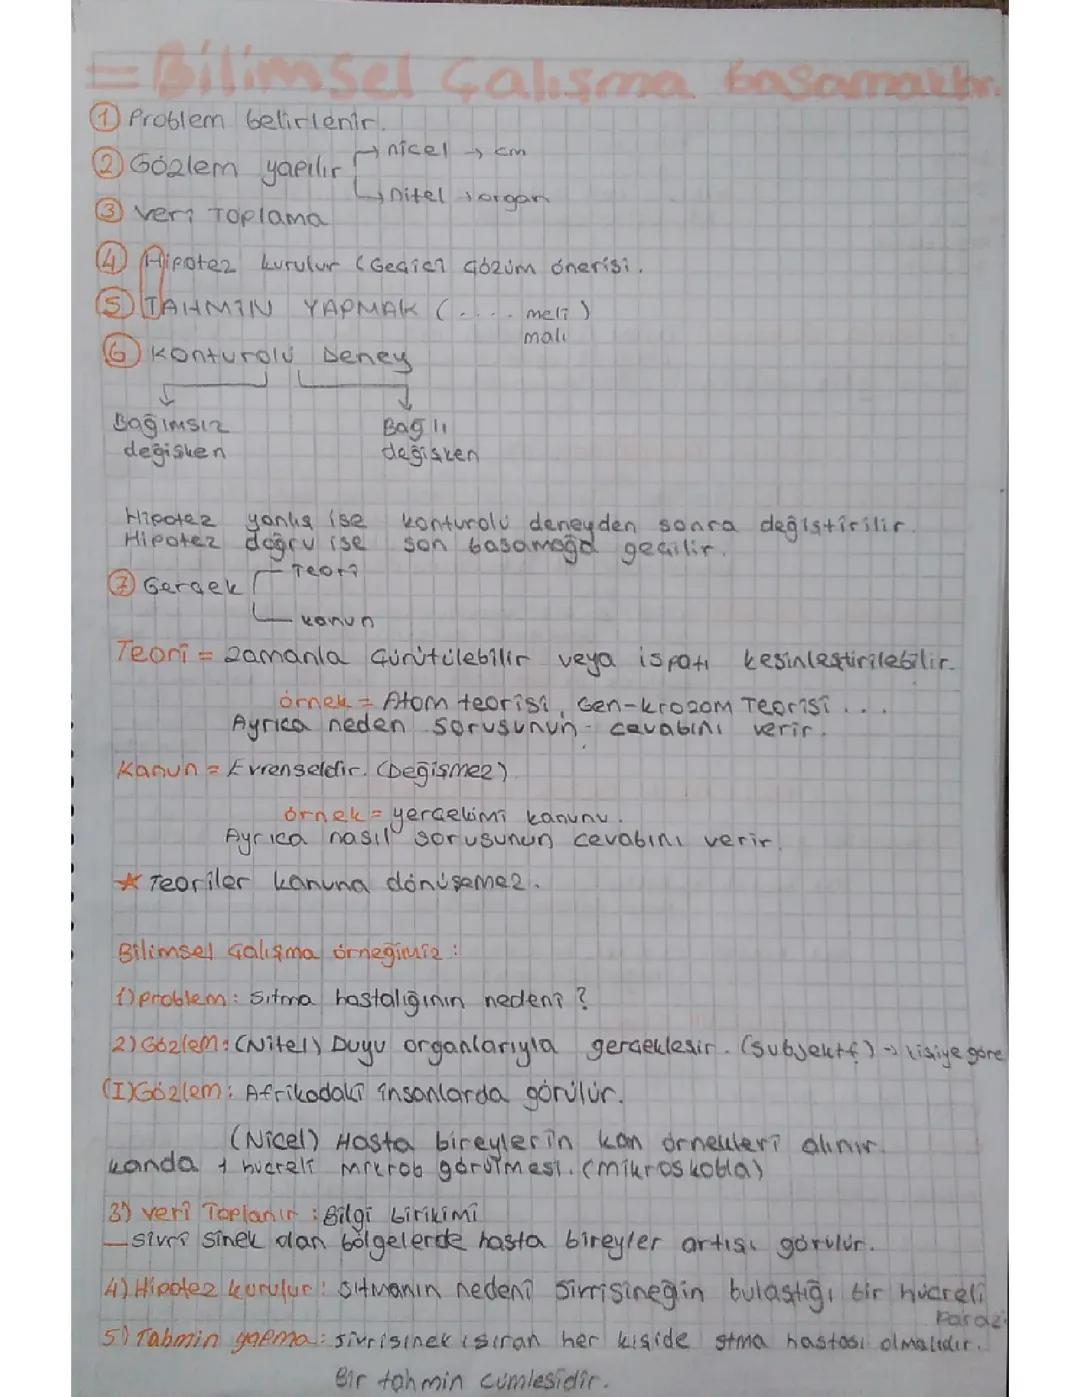 = Bilimsel Çalışma Basamakları.
① Problem belirlenir.
② Gözlem yapılır → nicel → cm
→ nitel → organ
③ Veri Toplama
④ Hipotez kurulur (Geçici çözüm önerisi.
⑤ TAHMİN YAPMAK (.... meli)
malı
⑥ Konturolü Deney
Bağımsız değişken
Bağlı değişken
Hipotez yanlış ise konturolü deneyden sonra değiştirilir.
Hipotez doğru ise son basamağa geçilir.
⑦ Gerçek Teori
kanun
Teori = zamanla çürütülebilir veya ispatı kesinleştirilebilir.
örnek = Atom teorisi, Gen-krozom Teorisi...
Ayrıca neden sorusunun cevabını verir.
Kanun = Evrenseldir. (Değişmez)
örnek = yerçekimi kanunu.
Ayrıca nasıl sorusunun cevabını verir.
★ Teoriler kanuna dönüşemez.
Bilimsel çalışma örneğimiz:
1) problem: Sıtma hastalığının nedeni?
2) Gözlem: (Nitel) Duyu organlarıyla gerçekleşir. (Subjektif) → kişiye göre
(I) Gözlem: Afrikadaki insanlarda görülür.
(Nicel) Hasta bireylerin kan örnekleri alınır.
kanda 1 hücreli mikrob görülmesi. (mikroskobla)
3) Veri Toplanır: Bilgi birikimi
_ sivri sinek olan bölgelerde hasta bireyler artışı görülür.
4) Hipotez kurulur: Sıtmanın nedeni sivrisineğin bulaştığı bir hücreli
5) Tahmin yapma: sivrisinek ısıran her kişide sıtma hastası olmalıdır.
Bir tahmin cümlesidir.